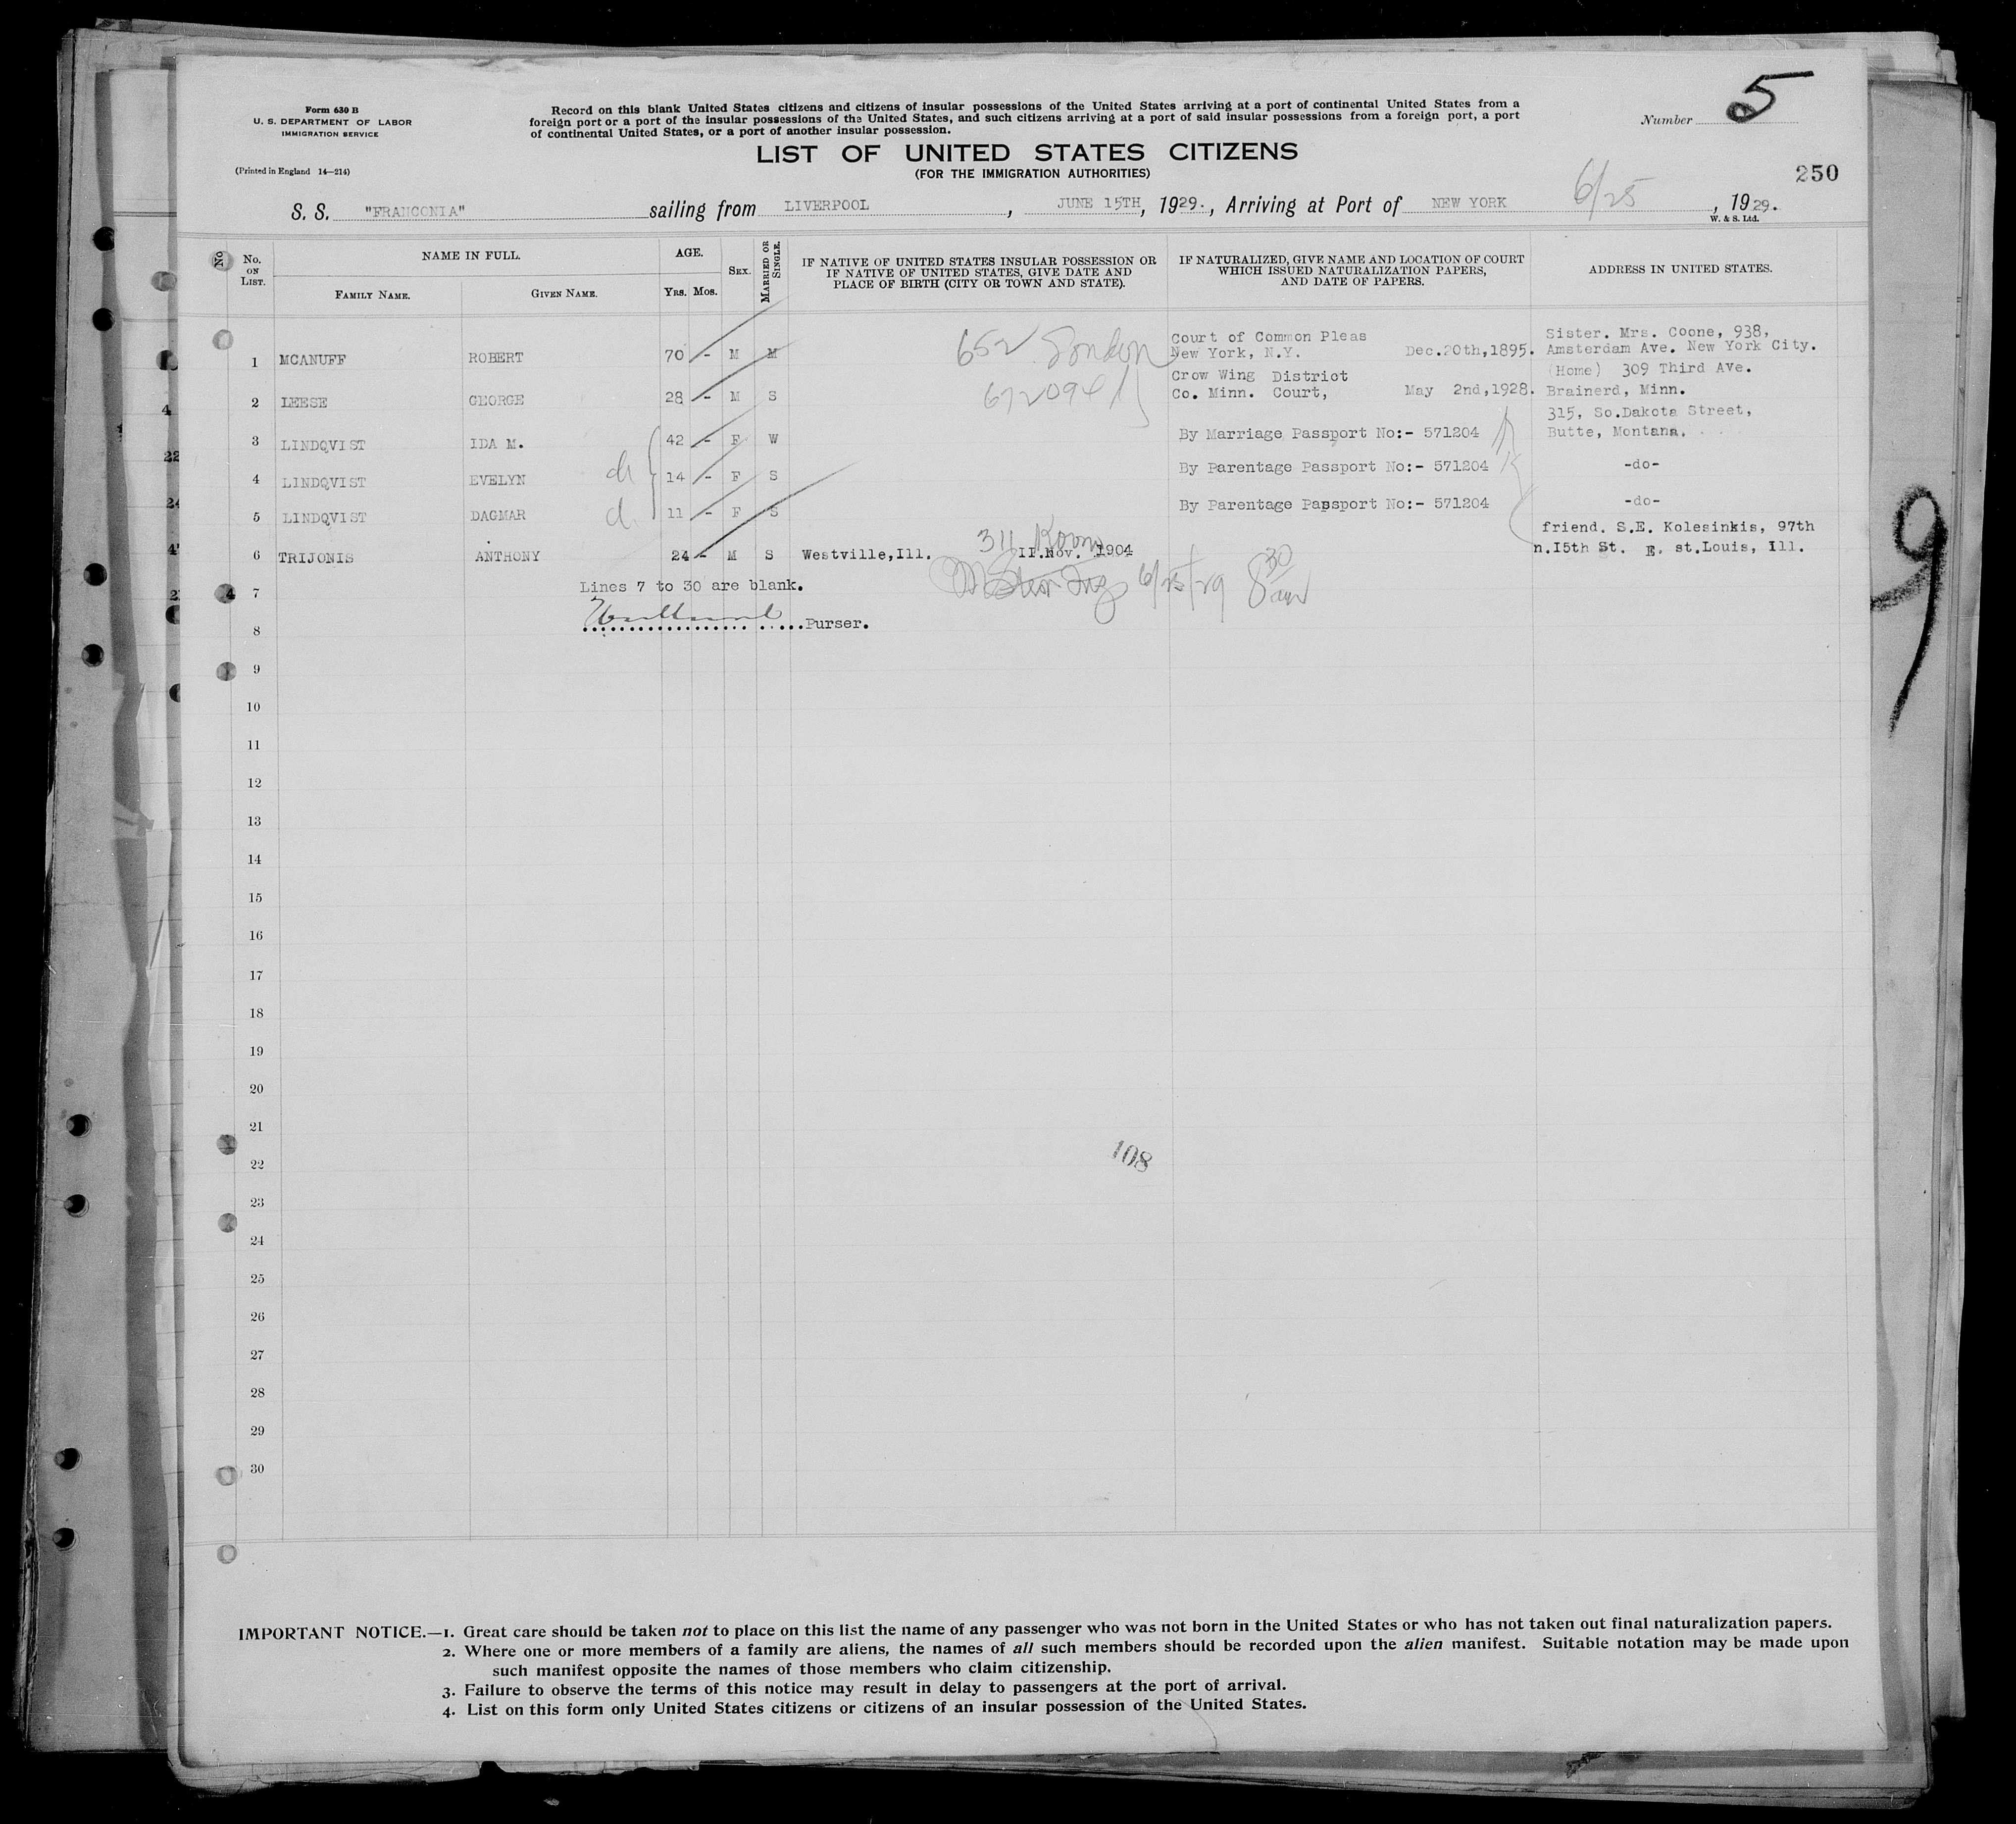 Form 630 B
U. S. DEPARTMENT OF LABOR
IMMIGRATION SERVICE
(Printed in England 14—214)
Record on this blank United States citizens and citizens of insular possessions of the United States arriving at a port of continental United States from a
foreign port or a port of the insular possessions of the United States, and such citizens arriving at a port of said insular possessions from a foreign port, a port
of continental United States, or a port of another insular possession.
Number 5
LIST OF UNITED STATES CITIZENS
(FOR THE IMMIGRATION AUTHORITIES)
250
S. S. "FRANCONIA" sailing from LIVERPOOL, JUNE 15TH, 1929., Arriving at Port of NEW YORK 6/25, 1929.
W. & S. Ltd.
No
No. ON LIST.
NAME IN FULL.
FAMILY NAME. GIVEN NAME.
AGE.
YRS. MOS.
SEX.
MARRIED OR SINGLE.
IF NATIVE OF UNITED STATES INSULAR POSSESSION OR
IF NATIVE OF UNITED STATES, GIVE DATE AND
PLACE OF BIRTH (CITY OR TOWN AND STATE).
IF NATURALIZED, GIVE NAME AND LOCATION OF COURT
WHICH ISSUED NATURALIZATION PAPERS,
AND DATE OF PAPERS.
ADDRESS IN UNITED STATES.
1 MCANUFF ROBERT 70 - M M 652 London Court of Common Pleas New York, N.Y. Dec.20th,1895. Sister. Mrs. Coone, 938, Amsterdam Ave. New York City.
2 LEESE GEORGE 28 - M S 672094 Crow Wing District Co. Minn. Court, May 2nd,1928. (Home) 309 Third Ave. Brainerd, Minn.
3 LINDQVIST IDA M. 42 - F W By Marriage Passport No:- 571204 315, So.Dakota Street, Butte, Montana.
4 LINDQVIST EVELYN ch 14 - F S By Parentage Passport No:- 571204 -do-
5 LINDQVIST DAGMAR ch 11 - F S By Parentage Passport No:- 571204 -do-
6 TRIJONIS ANTHONY 24 - M S Westville,Ill. 311 Kovno II.Nov. 1904 friend. S.E. Kolesinkis, 97th n.I5th St. E. st.Louis, Ill.
7 Lines 7 to 30 are blank. 6/25/29 8 30 am
8 Purser.
9
10
11
12
13
14
15
16
17
18
19
20
21
22
108
23
24
25
26
27
28
29
30
9
IMPORTANT NOTICE.—1. Great care should be taken not to place on this list the name of any passenger who was not born in the United States or who has not taken out final naturalization papers.
2. Where one or more members of a family are aliens, the names of all such members should be recorded upon the alien manifest. Suitable notation may be made upon
such manifest opposite the names of those members who claim citizenship.
3. Failure to observe the terms of this notice may result in delay to passengers at the port of arrival.
4. List on this form only United States citizens or citizens of an insular possession of the United States.